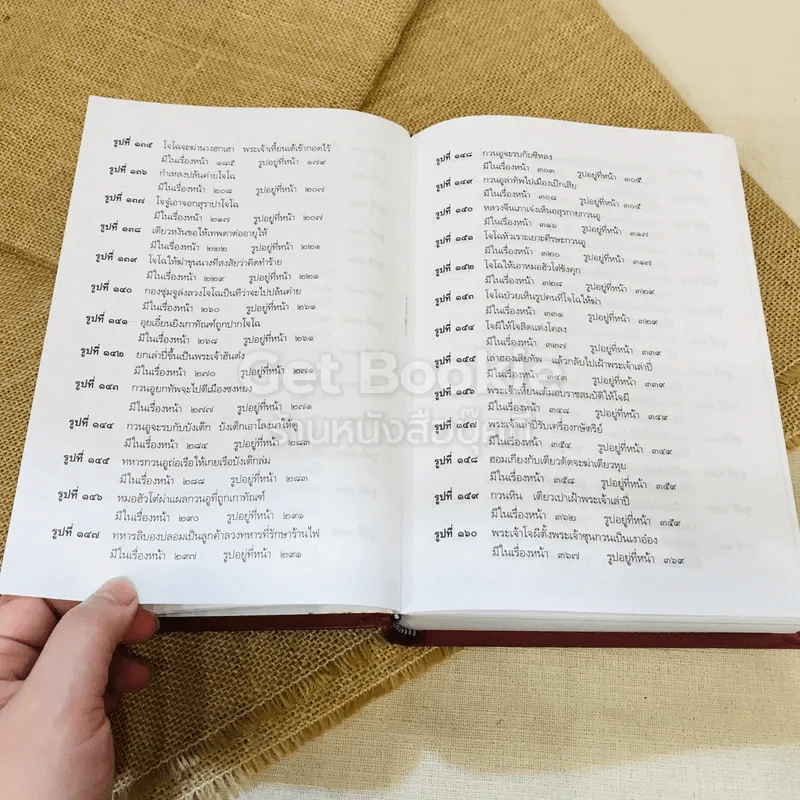 รูปที่ ๑๓๔ โจโฉจะฆ่านางฮกเฮา พระเจ้าเหี้ยนเต้เข้ากอดไว้
มีในเรื่องหน้า ๑๘๕ รูปอยู่ที่หน้า ๑๗๙
รูปที่ ๑๓๖ กำเหลงปล้นค่ายโจโฉ
มีในเรื่องหน้า ๒๐๘ รูปอยู่ที่หน้า ๒๐๗
รูปที่ ๑๓๗ โจจู๋เอาจอกสุราปาโจโฉ
มีในเรื่องหน้า ๒๑๗ รูปอยู่ที่หน้า ๒๐๗
รูปที่ ๑๓๘ เตียวหงันขอให้เทพดาต่ออายุให้
มีในเรื่องหน้า ๒๒๒ รูปอยู่ที่หน้า ๒๒๑
รูปที่ ๑๓๙ โจโฉให้ฆ่าขุนนางที่สงสัยว่าคิดทำร้าย
มีในเรื่องหน้า ๒๒๙ รูปอยู่ที่หน้า ๒๒๑
รูปที่ ๑๔๐ กองซุ่มจูล่งลวงโจโฉเป็นทีว่าจะไปปล้นค่าย
มีในเรื่องหน้า ๒๖๑ รูปอยู่ที่หน้า ๒๖๑
รูปที่ ๑๔๑ อุยเอี๋ยนยิงเกาทัณฑ์ถูกปากโจโฉ
มีในเรื่องหน้า ๒๖๘ รูปอยู่ที่หน้า ๒๖๑
รูปที่ ๑๔๒ ยกเล่าปี่ขึ้นเป็นพระเจ้าฮันต๋ง
มีในเรื่องหน้า ๒๗๐ รูปอยู่ที่หน้า ๒๗๑
รูปที่ ๑๔๓ กวนอูยกทัพจะไปตีเมืองซงหยง
มีในเรื่องหน้า ๒๗๗ รูปอยู่ที่หน้า ๒๗๑
รูปที่ ๑๔๔ กวนอูจะรบกับบังเต๊ก บังเต๊กเอาโลงมาให้ดู
มีในเรื่องหน้า ๒๘๔ รูปอยู่ที่หน้า ๒๘๓
รูปที่ ๑๔๕ ทหารกวนอูถ่อเรือให้เกยเรือบังเต๊กล่ม
มีในเรื่องหน้า ๒๘๘ รูปอยู่ที่หน้า ๒๘๓
รูปที่ ๑๔๖ หมอฮัวโต๋ผ่าแผลกวนอูที่ถูกเกาทัณฑ์
มีในเรื่องหน้า ๒๙๐ รูปอยู่ที่หน้า ๒๙๑
รูปที่ ๑๔๗ ทหารลิบองปลอมเป็นลูกค้าลวงทหารที่รักษาร้านไฟ
มีในเรื่องหน้า ๒๙๗ รูปอยู่ที่หน้า ๒๙๑
รูปที่ ๑๔๘ กวนอูจะรบกับซิหลง
มีในเรื่องหน้า ๓๐๓ รูปอยู่ที่หน้า ๓๐๕
รูปที่ ๑๔๙ กวนอูล่าทัพไปเมืองเป๊กเสีย
มีในเรื่องหน้า ๓๐๘ รูปอยู่ที่หน้า ๓๐๕
รูปที่ ๑๕๐ หลวงจีนเภาเจ๋งเห็นอสุรกายกวนอู
มีในเรื่องหน้า ๓๑๖ รูปอยู่ที่หน้า ๓๑๗
รูปที่ ๑๕๑ โจโฉหัวเราะเยาะศีรษะกวนอู
มีในเรื่องหน้า ๓๒๐ รูปอยู่ที่หน้า ๓๑๗
รูปที่ ๑๕๒ โจโฉให้เอาหมอฮัวโต๋ขังคุก
มีในเรื่องหน้า ๓๒๘ รูปอยู่ที่หน้า ๓๒๙
รูปที่ ๑๕๓ โจโฉป่วยเห็นรูปคนที่โจโฉให้ฆ่า
มีในเรื่องหน้า ๓๓๑ รูปอยู่ที่หน้า ๓๒๙
รูปที่ ๑๕๔ โจผีให้โจสิดแต่งโคลง
มีในเรื่องหน้า ๓๓๗ รูปอยู่ที่หน้า ๓๓๙
รูปที่ ๑๕๕ เล่าฮองเสียทัพ แล้วกลับไปเฝ้าพระเจ้าเล่าปี่
มีในเรื่องหน้า ๓๔๓ รูปอยู่ที่หน้า ๓๓๙
รูปที่ ๑๕๖ พระเจ้าเหี้ยนเต้มอบราชสมบัติให้โจผี
มีในเรื่องหน้า ๓๔๘ รูปอยู่ที่หน้า ๓๔๙
รูปที่ ๑๕๗ พระเจ้าเล่าปี่รับเครื่องกษัตริย์
มีในเรื่องหน้า ๓๕๔ รูปอยู่ที่หน้า ๓๔๙
รูปที่ ๑๕๘ ฮอมเกียงกับเตียวตัดจะฆ่าเตียวหุย
มีในเรื่องหน้า ๓๕๘ รูปอยู่ที่หน้า ๓๕๙
รูปที่ ๑๕๙ กวนหิน เตียวเปาเฝ้าพระเจ้าเล่าปี่
มีในเรื่องหน้า ๓๖๒ รูปอยู่ที่หน้า ๓๕๙
รูปที่ ๑๖๐ พระเจ้าโจผีตั้งพระเจ้าซุนกวนเป็นเงาอ๋อง
มีในเรื่องหน้า ๓๖๗ รูปอยู่ที่หน้า ๓๖๙
Get Bookie
ร้านหนังสือบุ๊คกี้